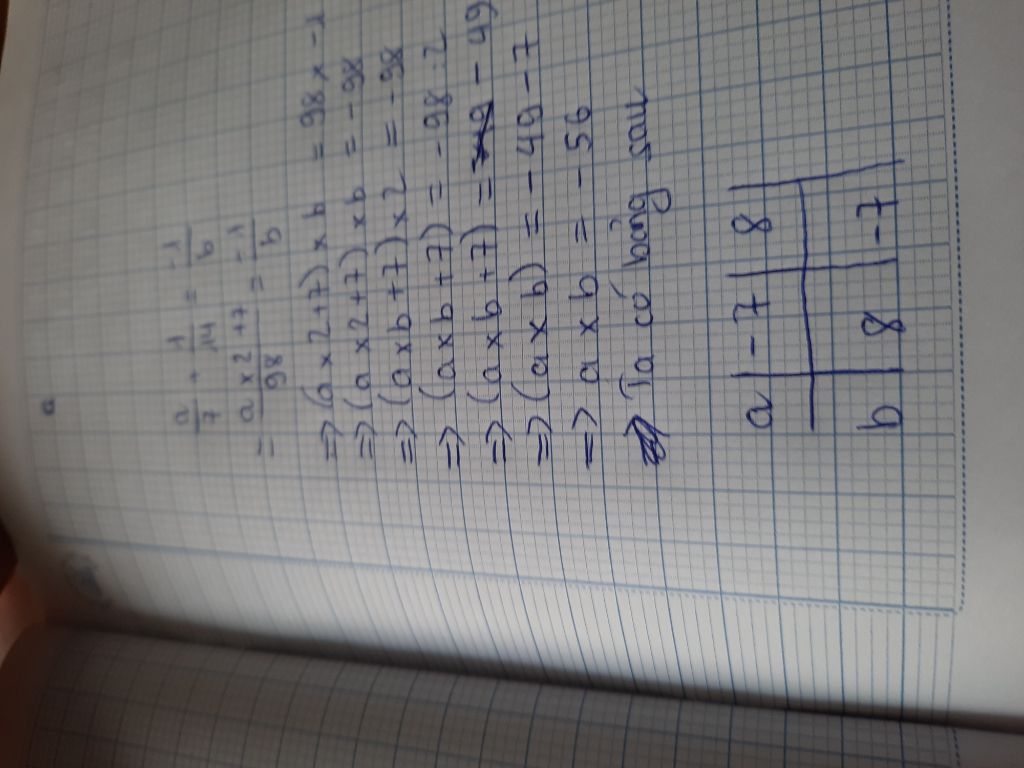 a
a/7 + 1/14 = -1/b
= a x 2 + 7/98 = -1/b
=> (a x 2 + 7) x b = 98 x -1
=> (a x 2 + 7) x b = -98
=> (a x b + 7) x 2 = -98
=> (a x b + 7) = -98 : 2
=> (a x b + 7) = - 49
=> (a x b) = - 49 - 7
=> a x b = - 56
Ta có bảng sau
a | -7 | 8
b | 8 | -7